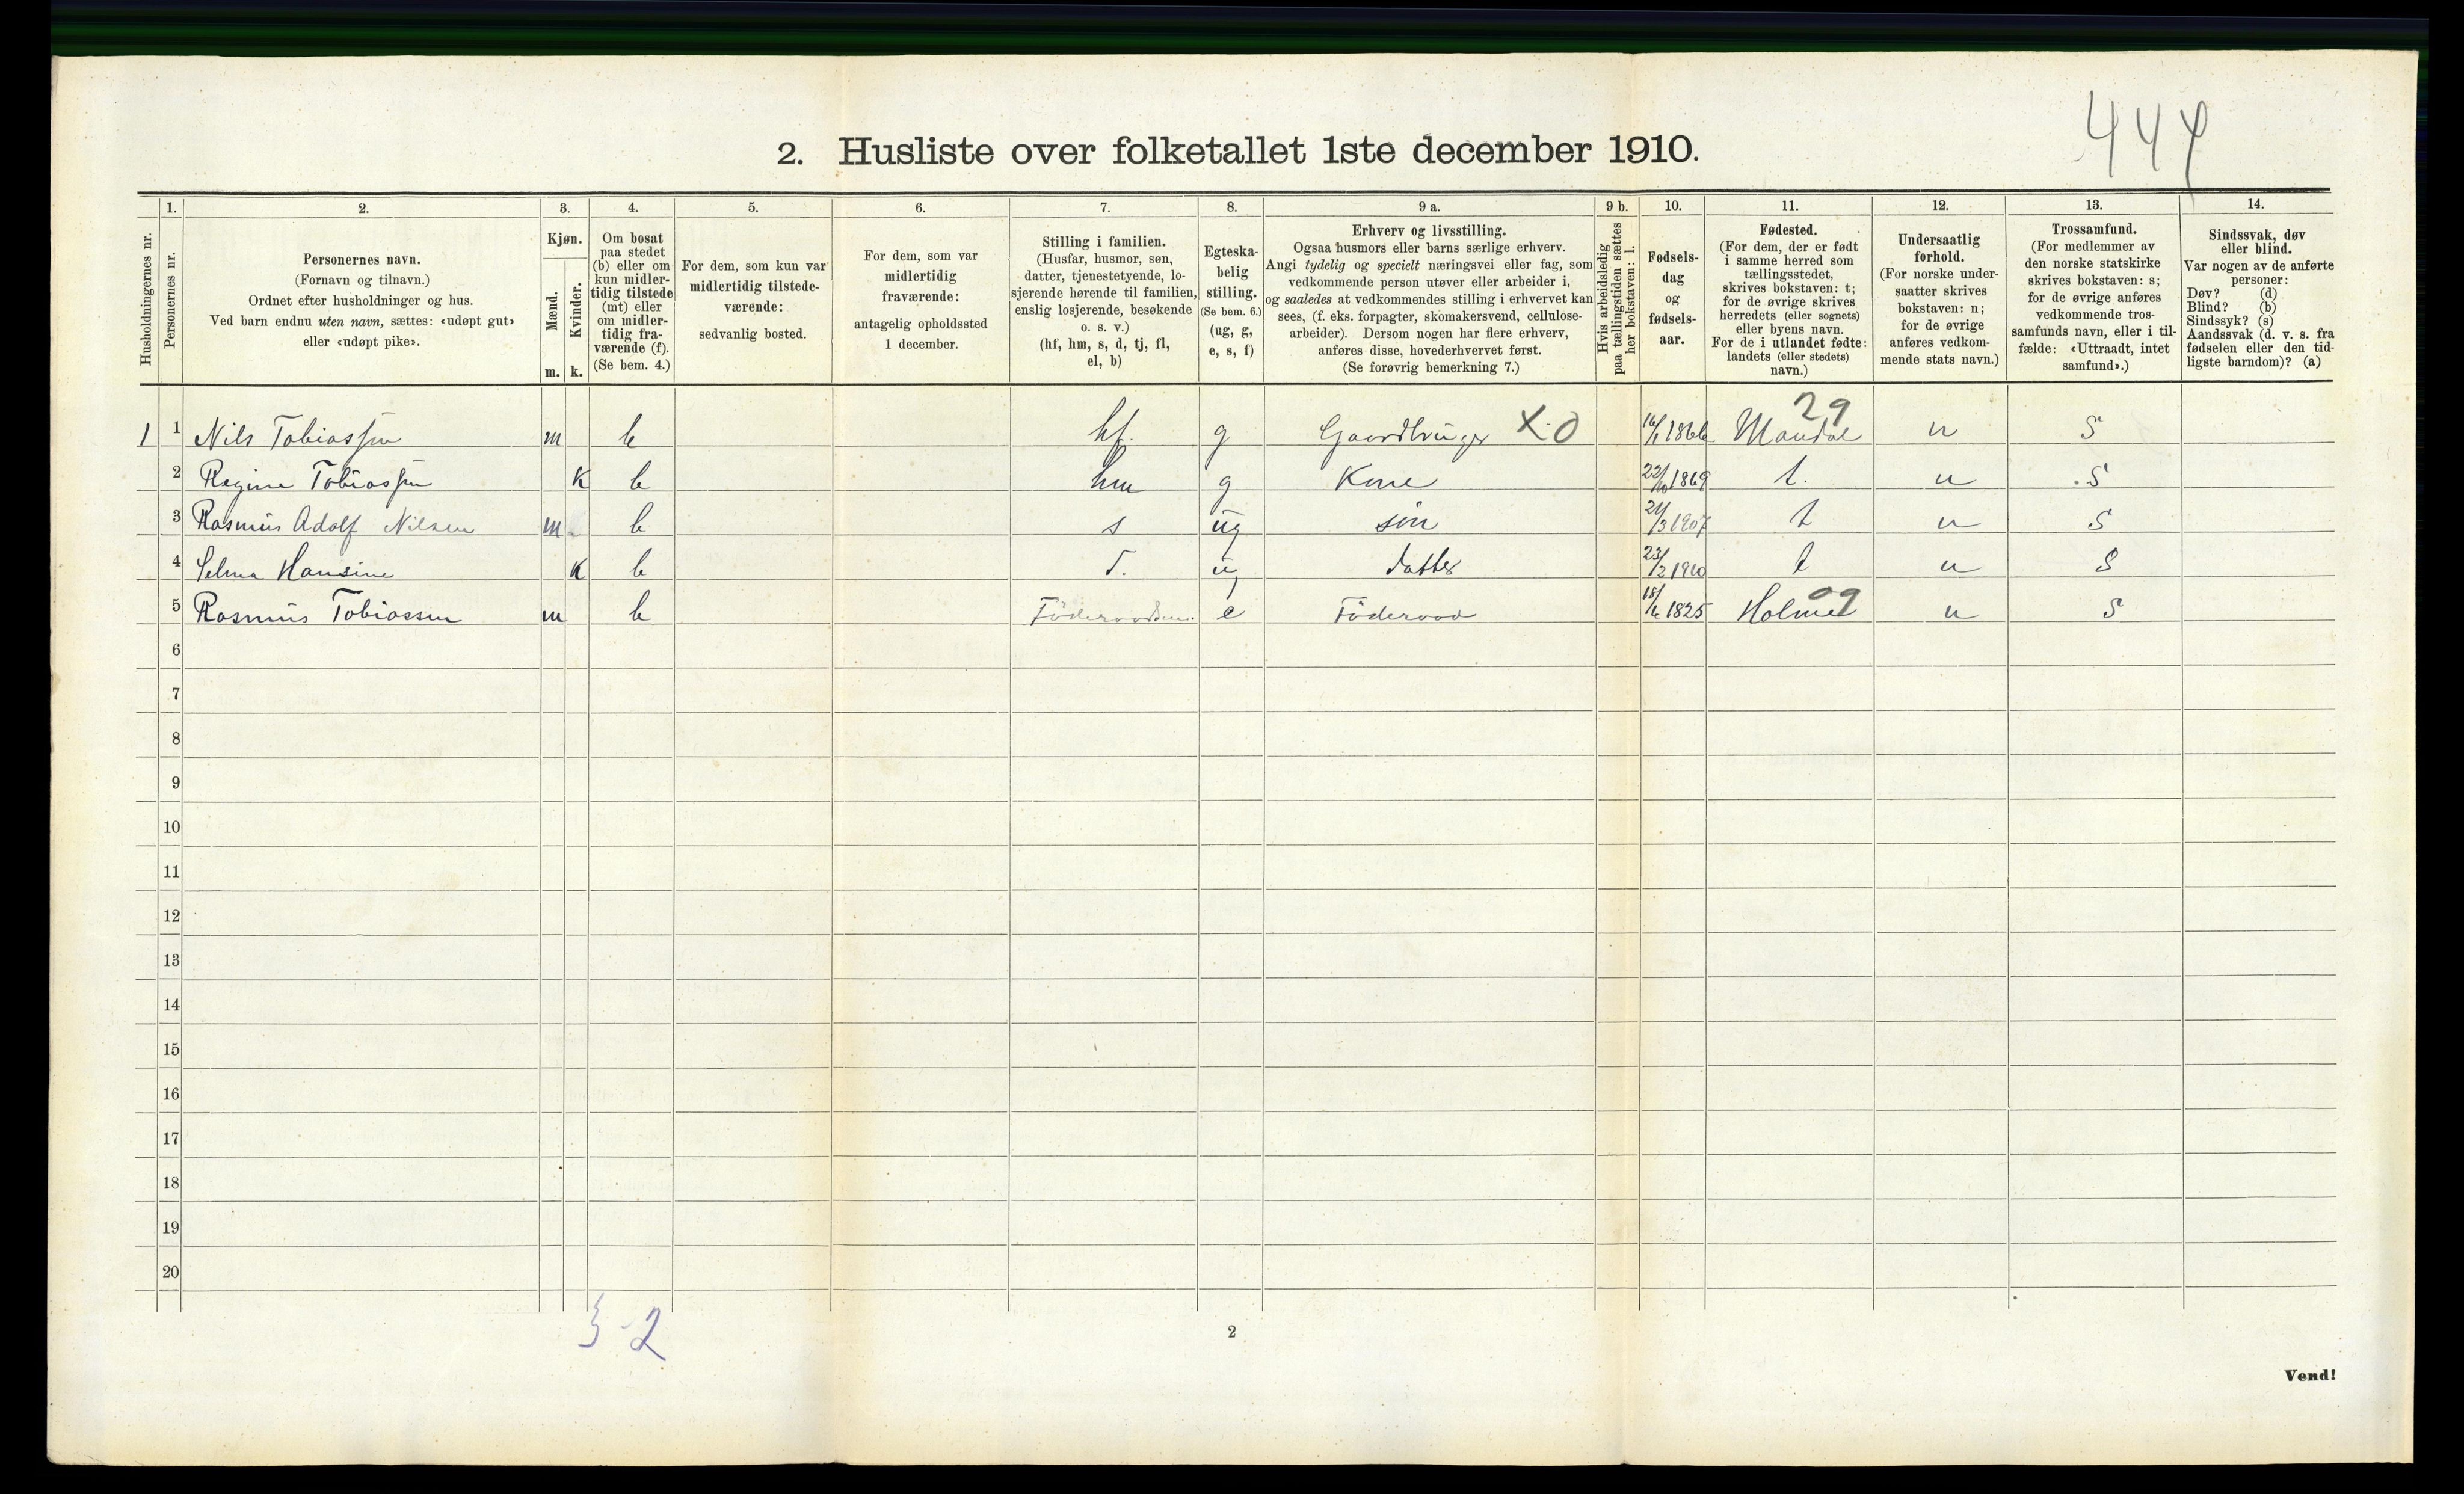 444
2. Husliste over folketallet 1ste december 1910.
Husholdningernes nr.
1.
Personernes nr.
2.
Personernes navn.
(Fornavn og tilnavn.)
Ordnet efter husholdninger og hus.
Ved barn endnu uten navn, sættes: «udøpt gut»
eller «udøpt pike».
3.
Kjøn.
Mænd.
Kvinder.
m. k.
4.
Om bosat
paa stedet
(b) eller om
kun midler-
tidig tilstede
(mt) eller
om midler-
tidig fra-
værende (f).
(Se bem. 4.)
5.
For dem, som kun var
midlertidig tilstede-
værende:
sedvanlig bosted.
6.
For dem, som var
midlertidig
fraværende:
antagelig opholdssted
1 december.
7.
Stilling i familien.
(Husfar, husmor, søn,
datter, tjenestetyende, lo-
sjerende hørende til familien,
enslig losjerende, besøkende
o. s. v.)
(hf, hm, s, d, tj, fl,
el, b)
8.
Egteska-
belig
stilling.
(Se bem. 6.)
(ug, g,
e, s, f)
9 a.
Erhverv og livsstilling.
Ogsaa husmors eller barns særlige erhverv.
Angi tydelig og specielt næringsvei eller fag, som
vedkommende person utøver eller arbeider i,
og saaledes at vedkommendes stilling i erhvervet kan
sees, (f. eks. forpagter, skomakersvend, cellulose-
arbeider). Dersom nogen har flere erhverv,
anføres disse, hovederhvervet først.
(Se forøvrig bemerkning 7.)
9 b.
Hvis arbeidsledig
paa tællingstiden sættes
her bokstaven: l.
10.
Fødsels-
dag
og
fødsels-
aar.
11.
Fødested.
(For dem, der er født
i samme herred som
tællingsstedet,
skrives bokstaven: t;
for de øvrige skrives
herredets (eller sognets)
eller byens navn.
For de i utlandet fødte:
landets (eller stedets)
navn.)
12.
Undersaatlig
forhold.
(For norske under-
saatter skrives
bokstaven: n;
for de øvrige
anføres vedkom-
mende stats navn.)
13.
Trossamfund.
(For medlemmer av
den norske statskirke
skrives bokstaven: s;
for de øvrige anføres
vedkommende tros-
samfunds navn, eller i til-
fælde: «Uttraadt, intet
samfund».)
14.
Sindssvak, døv
eller blind.
Var nogen av de anførte
personer:
Døv? (d)
Blind? (b)
Sindssyk? (s)
Aandssvak (d. v. s. fra
fødselen eller den tid-
ligste barndom)? (a)
29
1 1 Nils Tobiassen m b hf. g Gaardbruger X.0 1866 Mandal n S
2 Regine Tobiassen K b hm g Kone 22/10 1869 t. n S
3 Rasmus Adolf Nilsen m b s ug søn 21/3 1907 t n S
4 Selma Hansine K b d. ug datter 23/2 1910 t n S
09
5 Rasmus Tobiassen m b e Føderaad 18/6 1825 Holme n S
6
7
8
9
10
11
12
13
14
15
16
17
18
19
20
3-2
2
Vend!